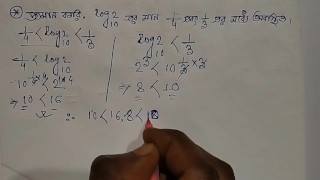 প্রমাণ করি, log₁₀2 এর মান 1/4 এবং 1/3 এর মধ্যে অবস্থিত।
1/4 < log₁₀2 < 1/3
1/4 < log₁₀2
10^(1/4×4) < 2^(1×4)
⇒ 10 < 16
log₁₀2 < 1/3
2³ < 10^(1/3×3)
⇒ 8 < 10
∴ 10 < 16, 8 < 10